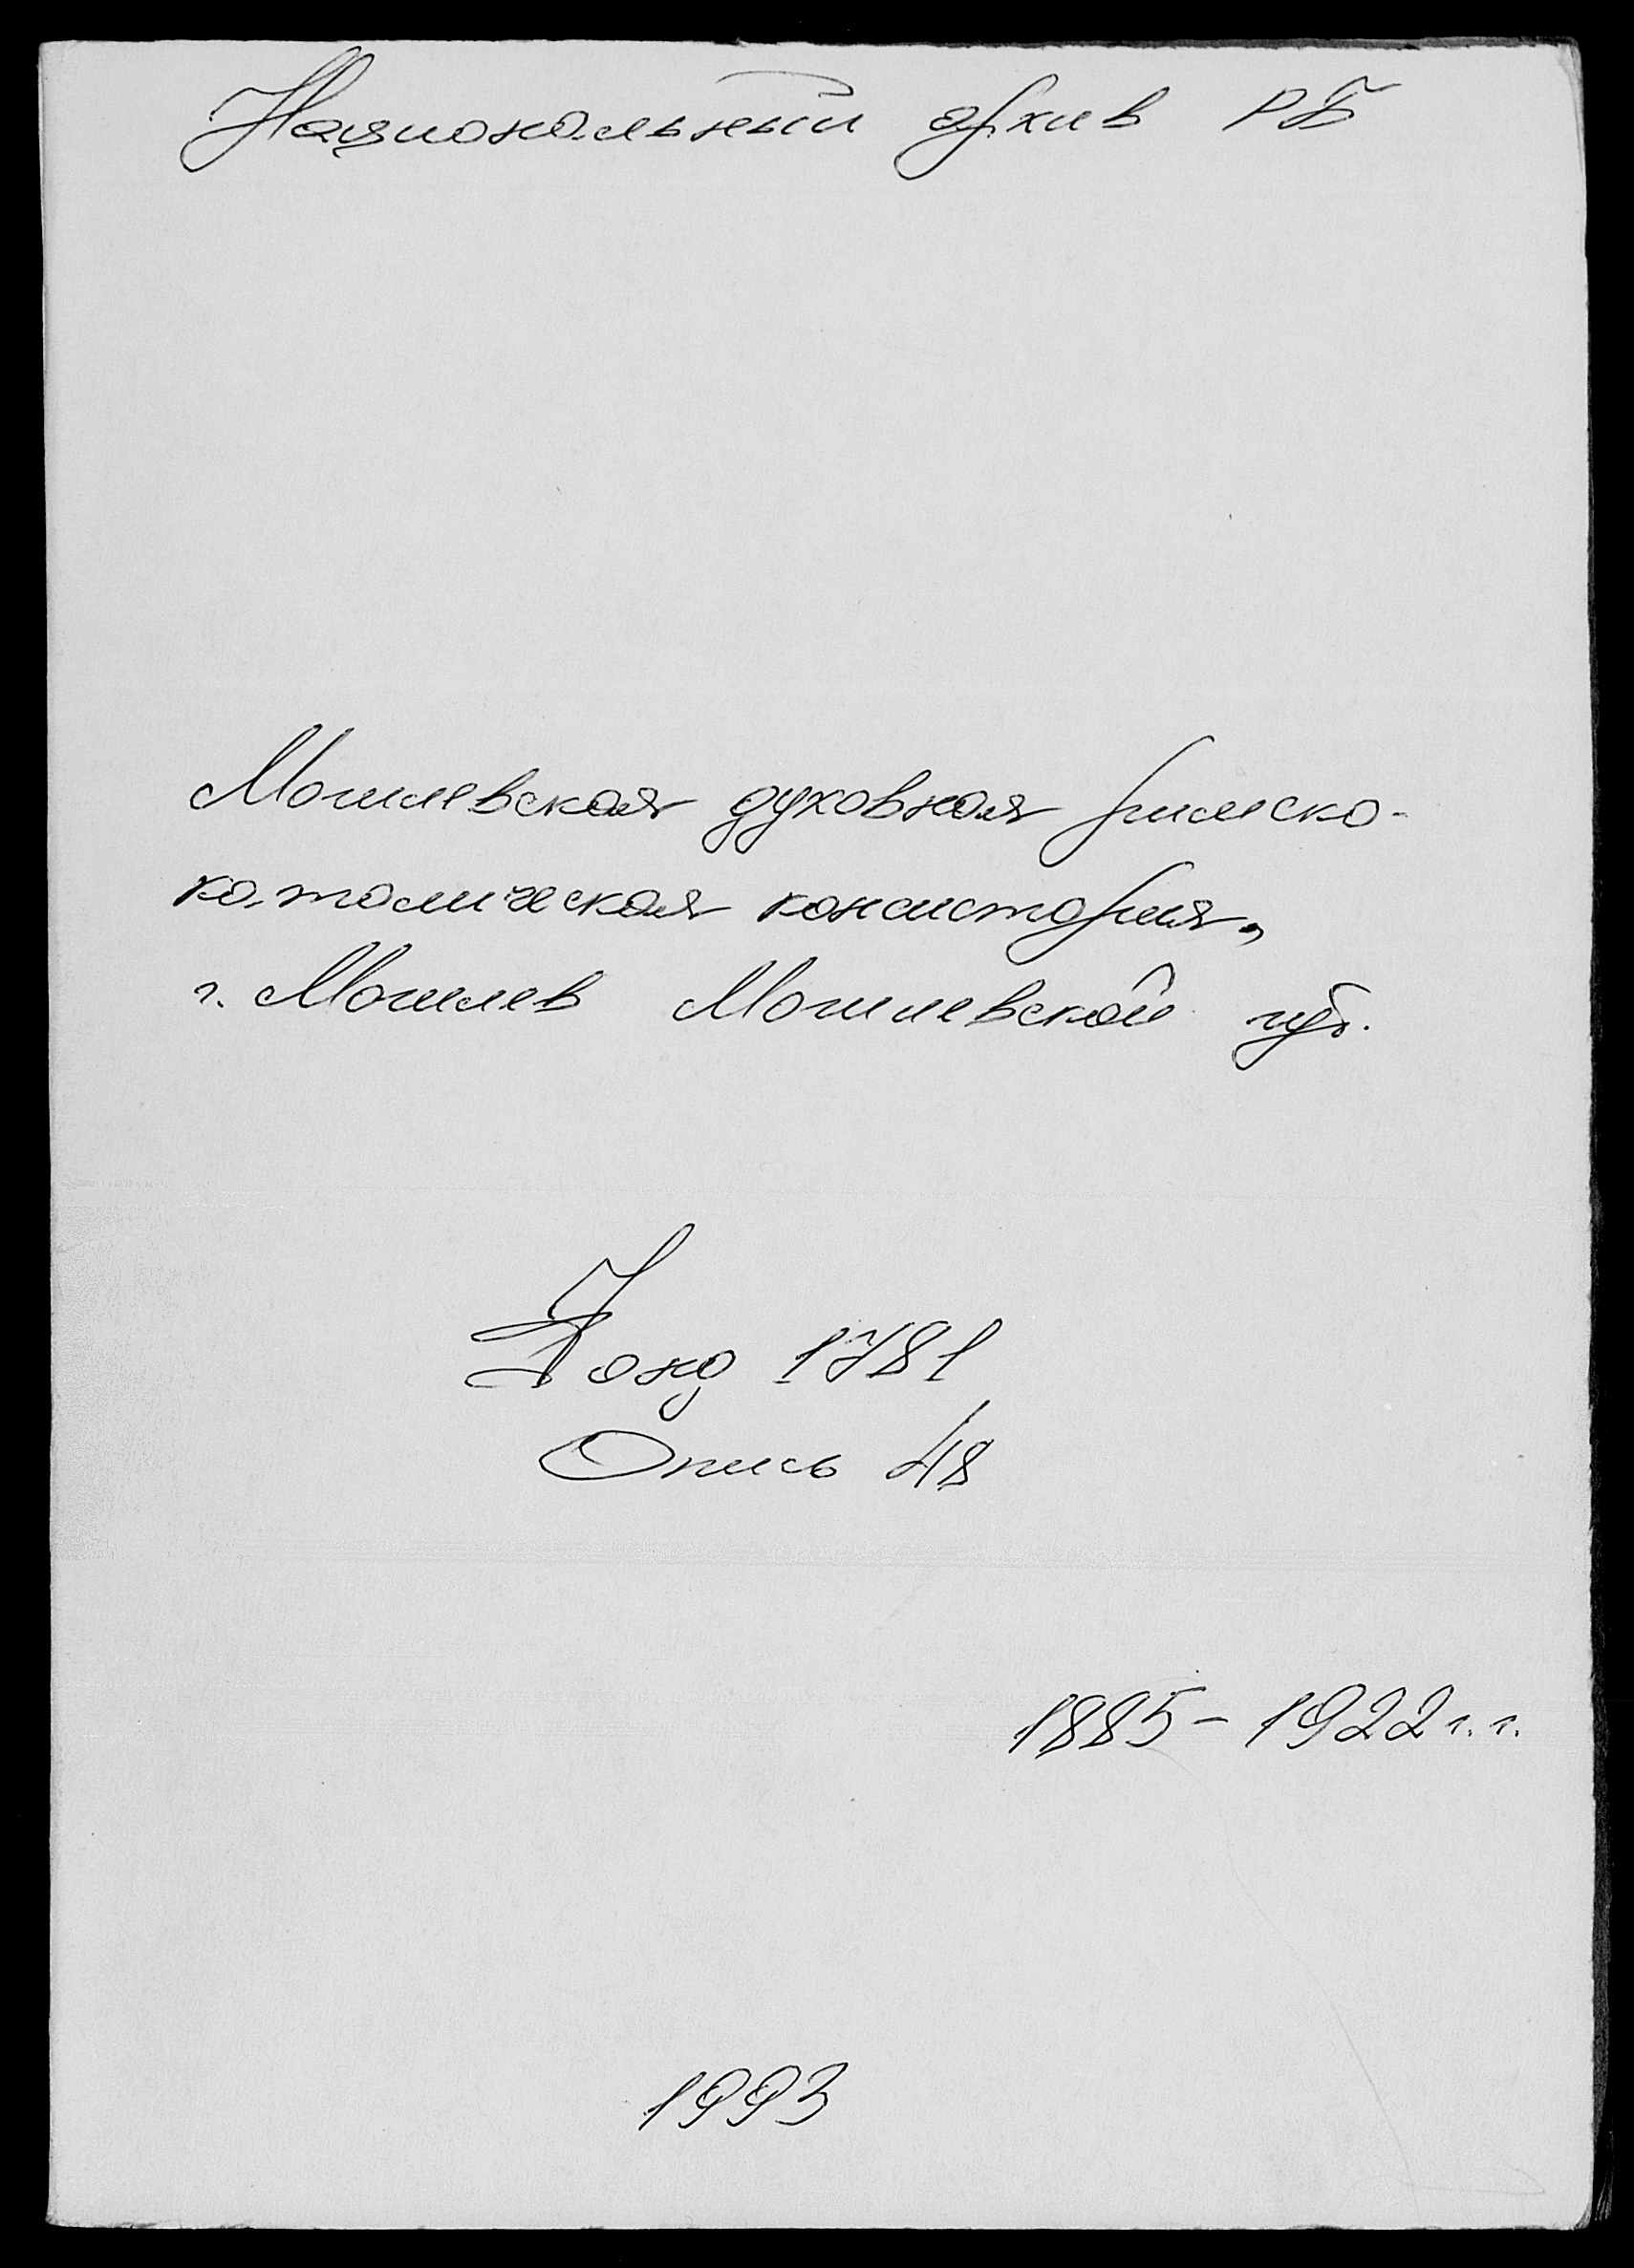 Национальный архив РБ
Могилевская духовная римско-
католическая консистория,
г. Могилев Могилевской губ.
Фонд 1781
Опись 48
1885-1922 г.г.
1993